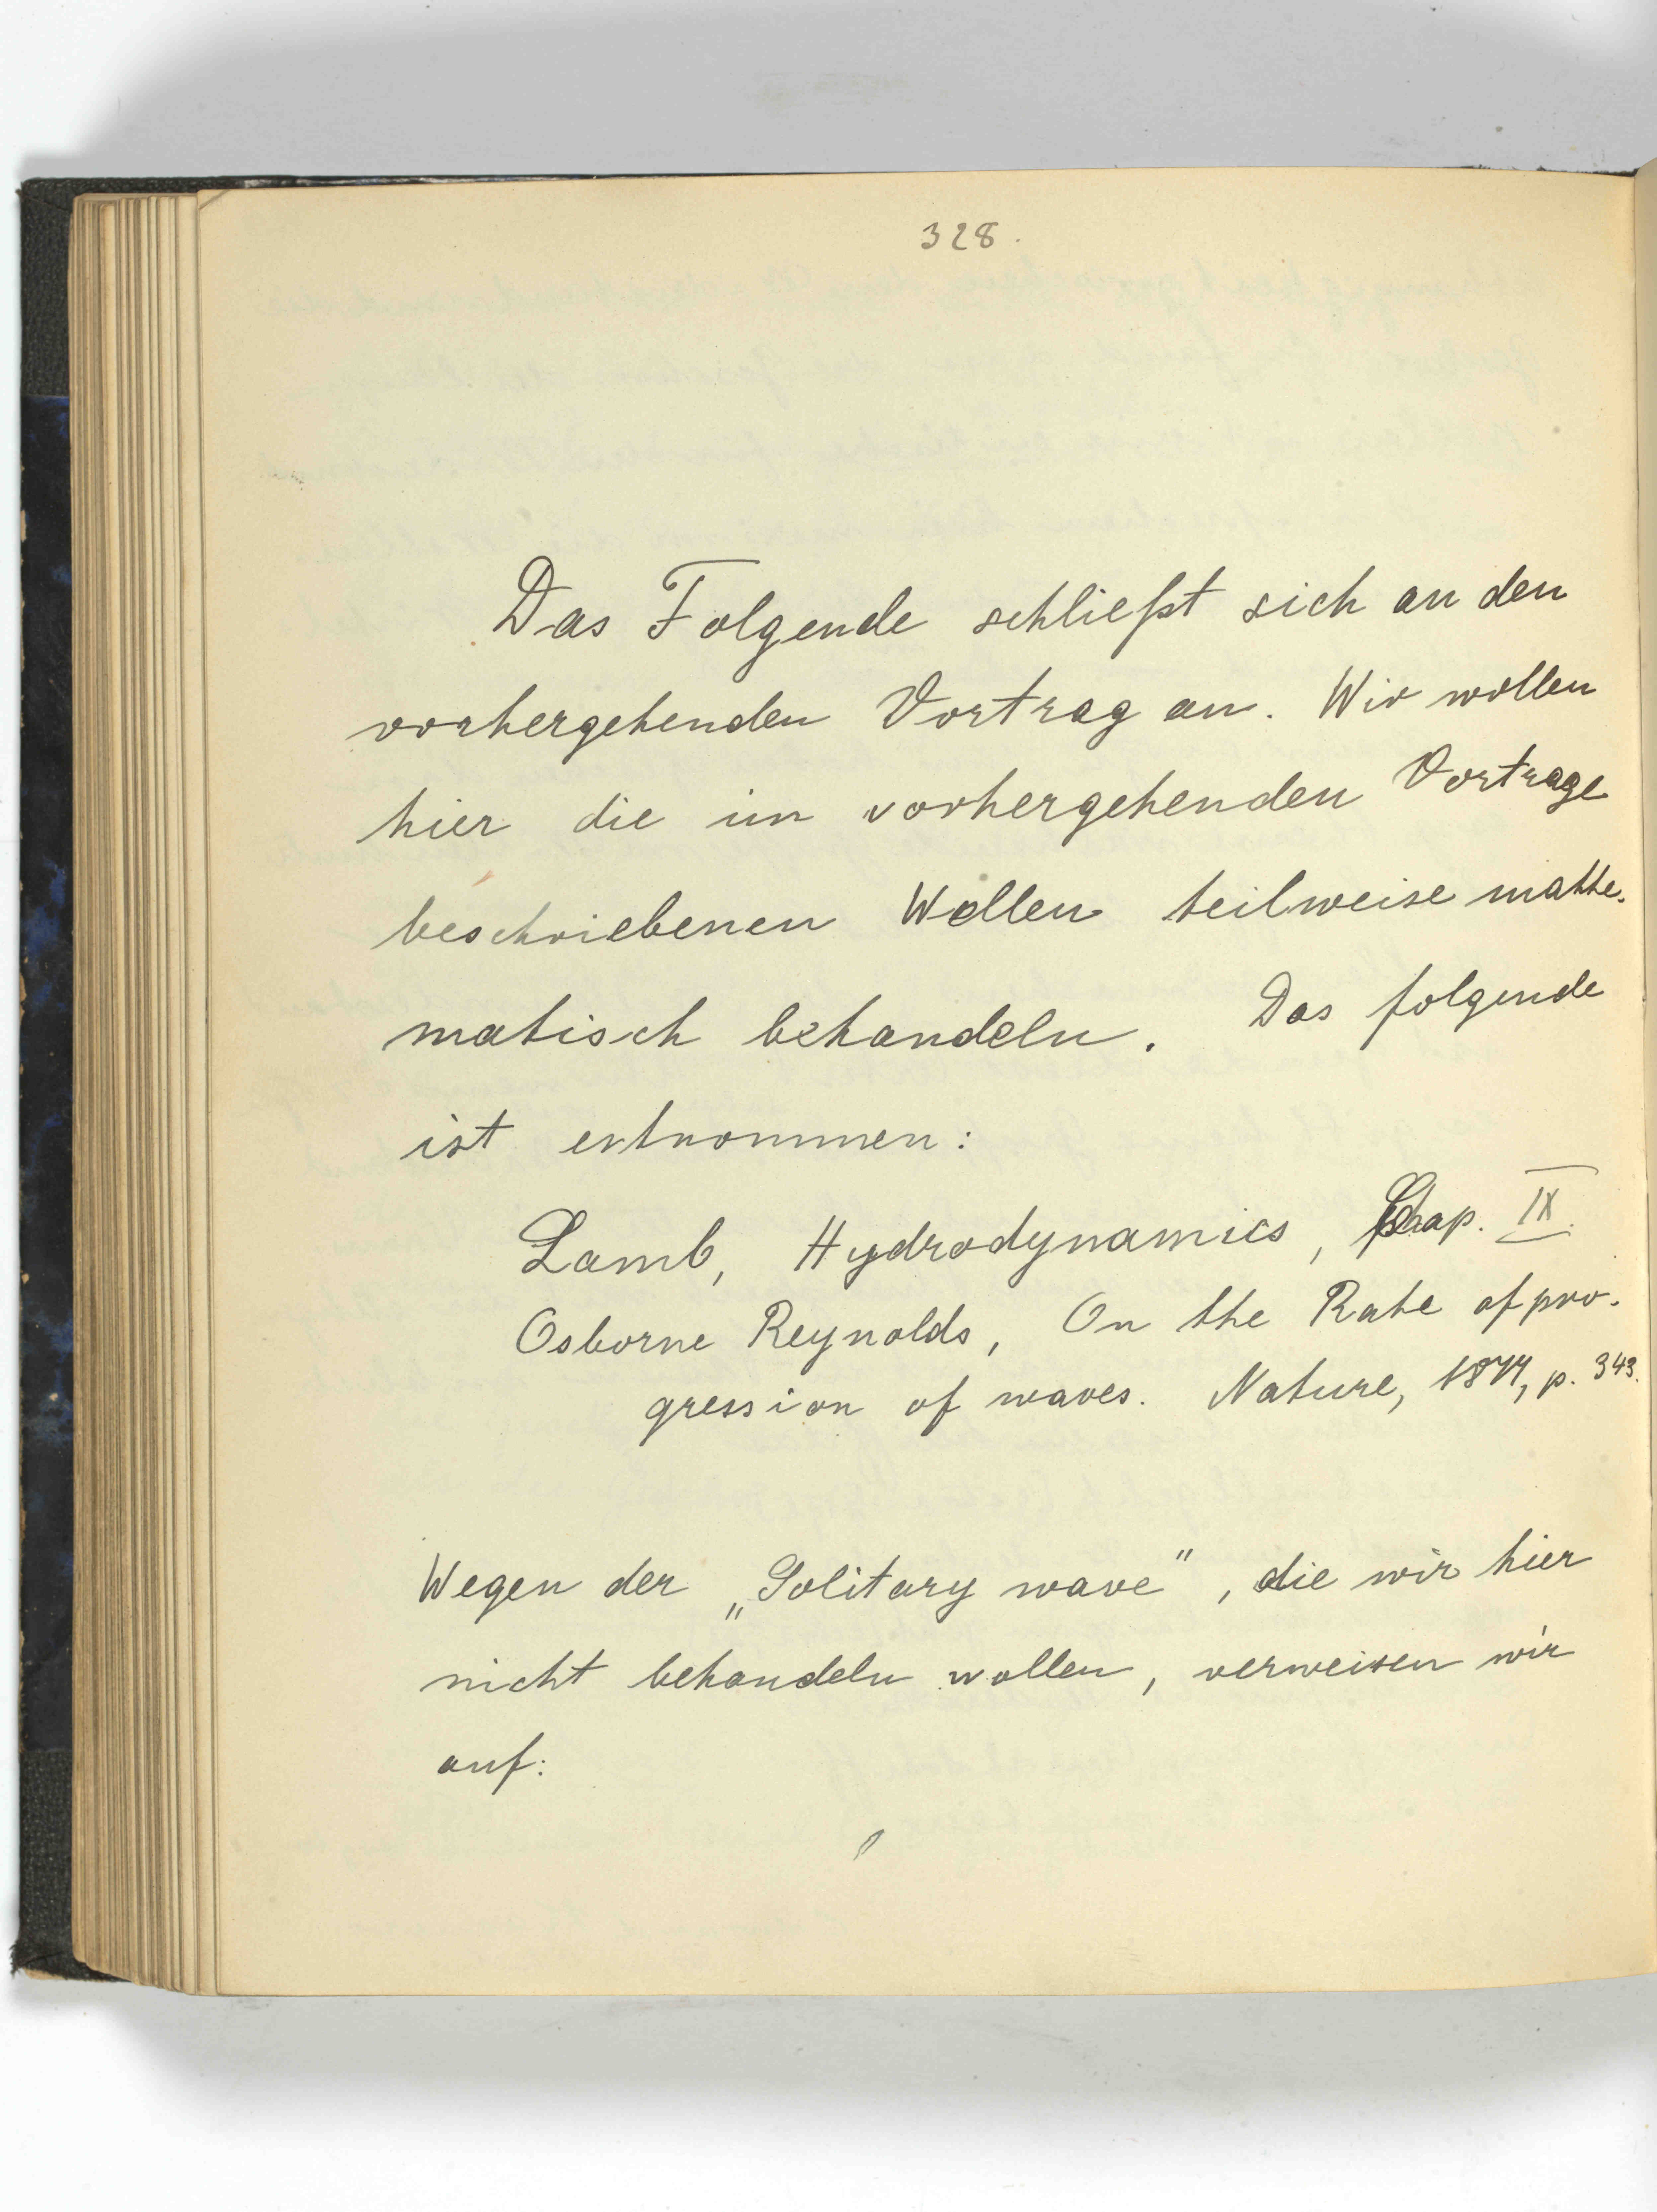 328.
Das Folgende schließt sich an den
vorhergehenden Vortrag an. Wir wollen
hier die im vorhergehenden Vortrage
beschriebenen Wellen teilweise mathe-
matisch behandeln. Das folgende
ist entnommen:
Lamb, Hydrodynamics, Chap. IX.
Osborne Reynolds, On the Rate of pro-
gression of waves. Nature, 1877, p. 343.
Wegen der „Solitary wave", die wir hier
nicht behandeln wollen, verweisen wir
auf: